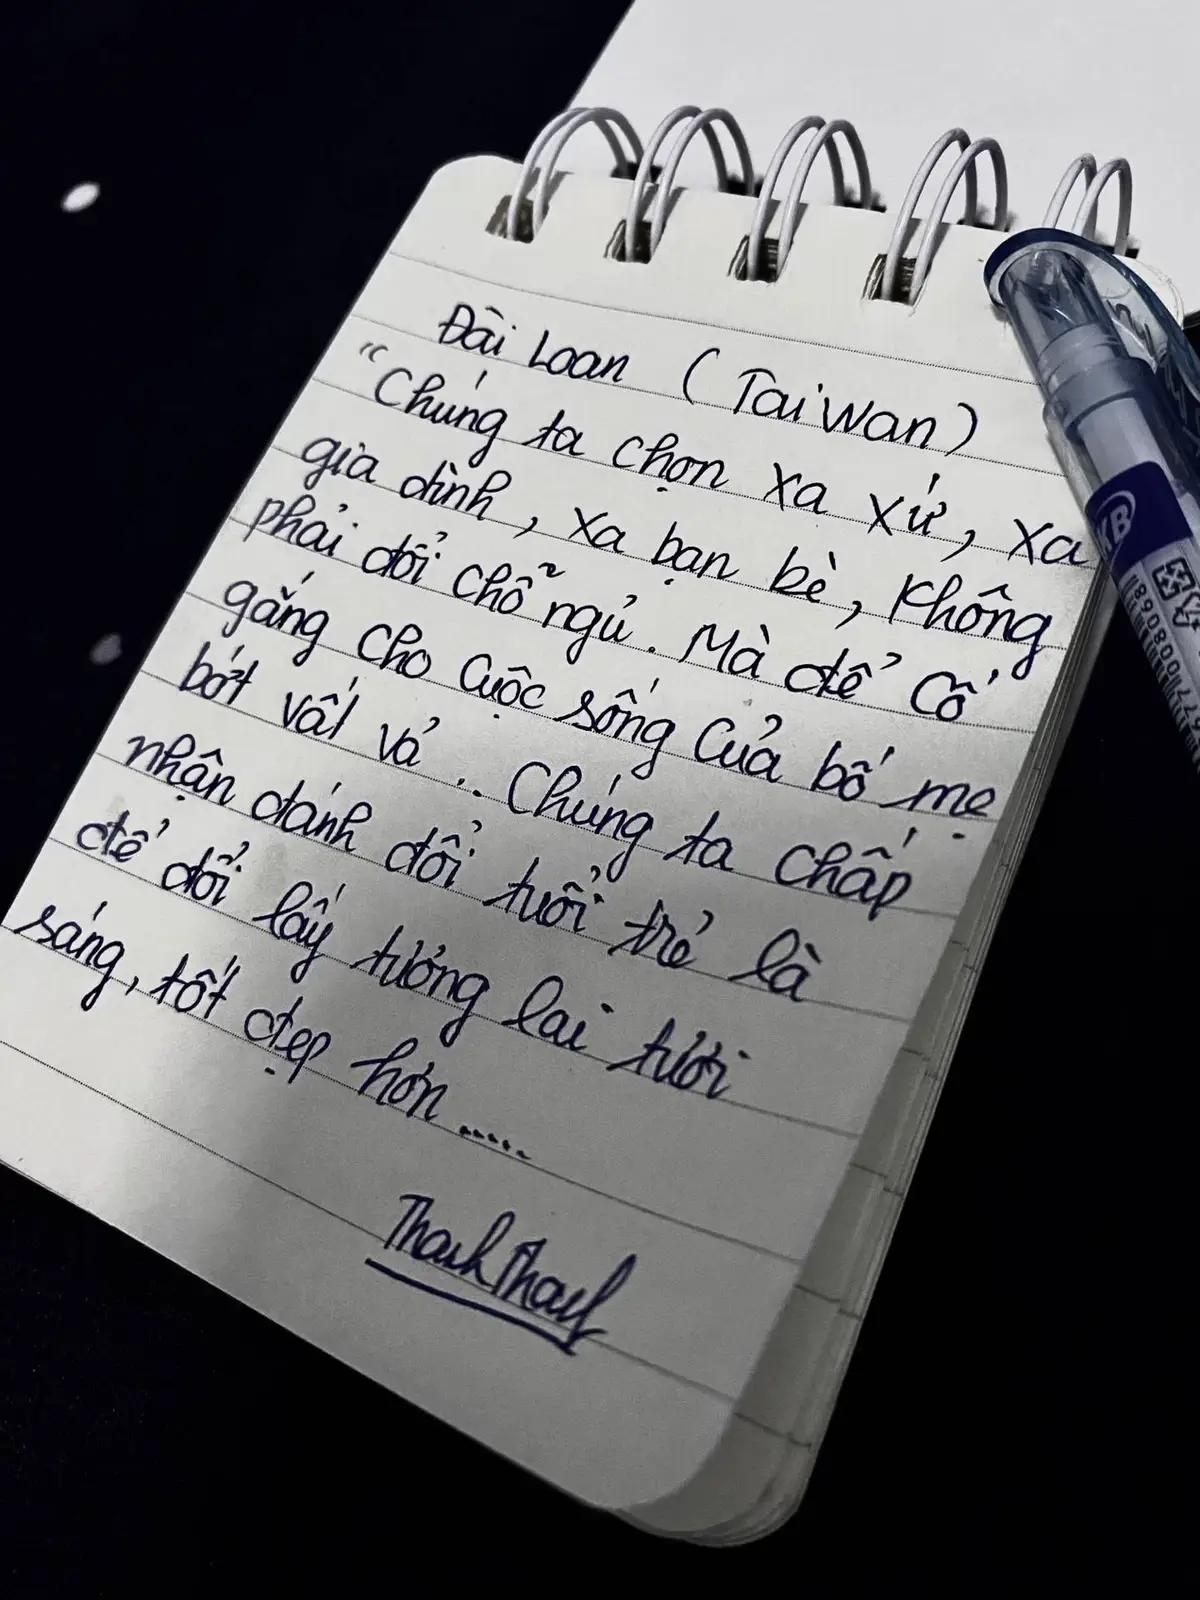 Đài Loan (Taiwan)
"Chúng ta chọn xa xứ, xa
gia đình, xa bạn bè, không
phải đổi chỗ ngủ. Mà để cố
gắng cho cuộc sống của bố mẹ
bớt vất vả.. Chúng ta chấp
nhận đánh đổi tuổi trẻ là
để đổi lấy tương lai tươi
sáng, tốt đẹp hơn.....